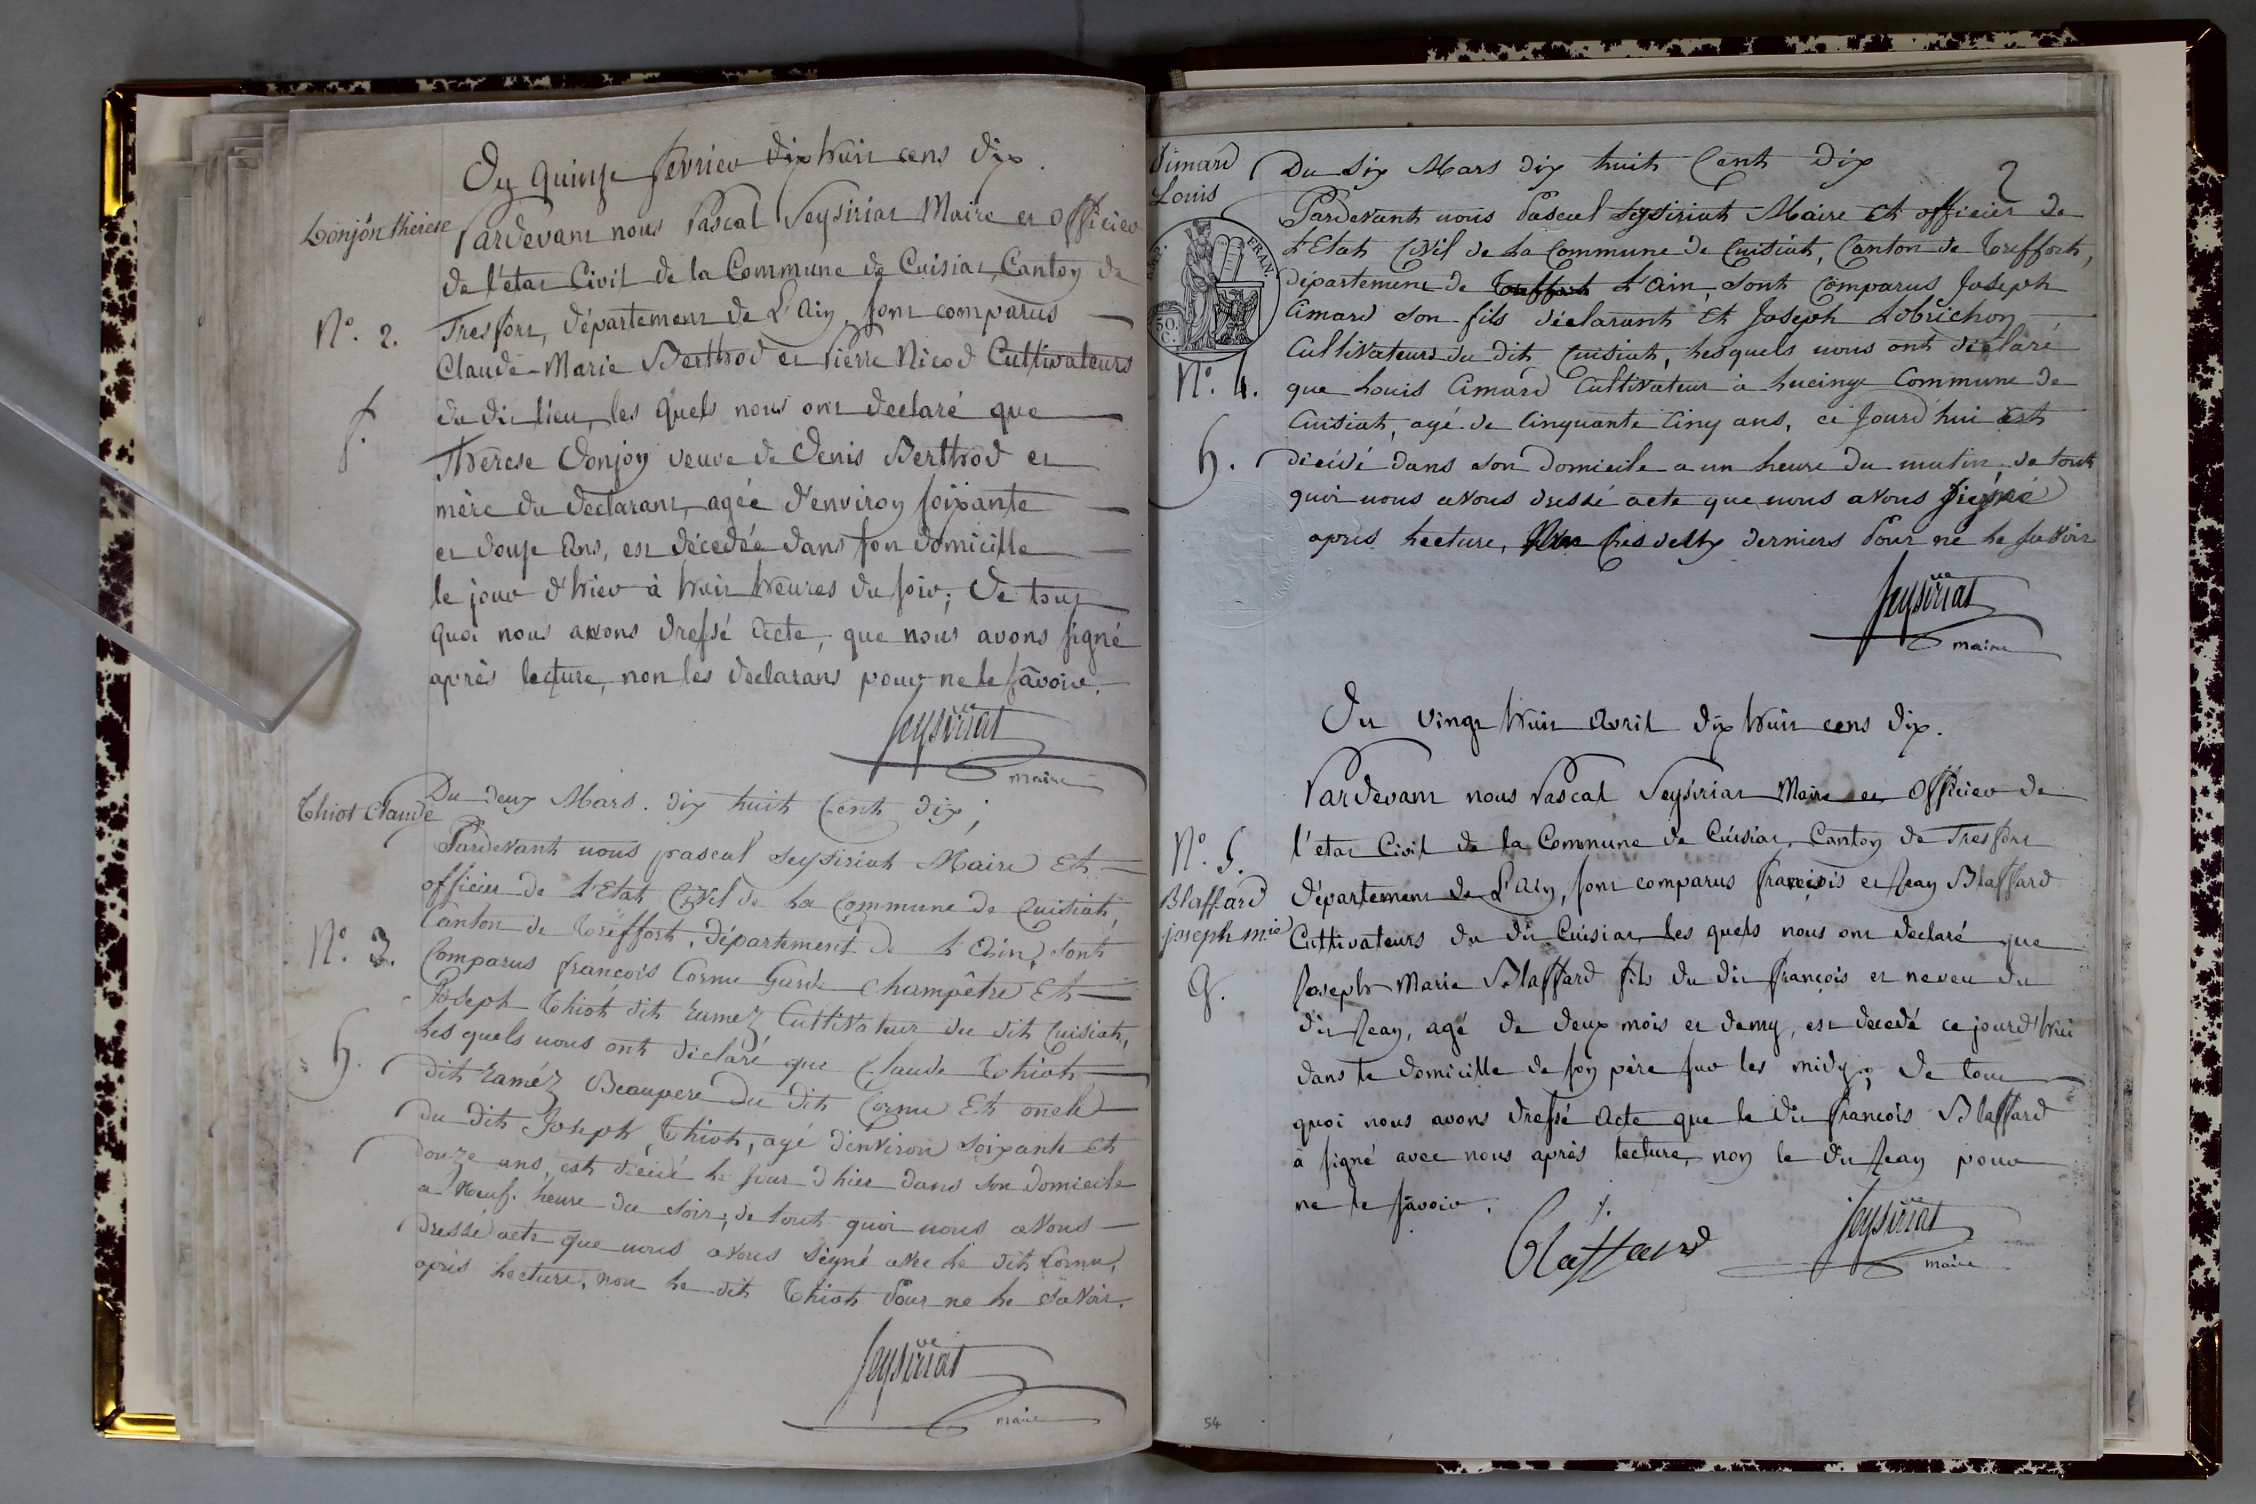 Du quinze fevrier dix huit cens dix.
Donjon thérèse
Pardevant nous Pascal Seysiriat Maire et Officier
de l'état Civil de la Commune de Cuisiat, Canton de
N.º 2.
Tresfort, département de L'Ain, sont comparus
Claude-Marie Berthod et Pierre Nicod Cultivateurs
f.
du dit lieu, les quels nous ont declaré que
Thérese Donjon veuve de Denis Berthod et
mère du declarant, agée d'environ soixante
et douze Ans, est décedée dans son domicille
le jour d'hier à huit heures du soir; De tout
quoi nous avons dressé Acte, que nous avons signé
après lecture, non les declarans pour ne le savoir.
Seysiriat
maire
Thiot Claude
Du deux Mars. dix huit Cent dix;
Pardevant nous pascal Seysiriat Maire Et
officier de L'Etat Civil de La Commune de Cuisiat,
Canton de treffort, département de L'Ain, sont
N.º 3.
Comparus françois Cornu Garde Champêtre Et
Joseph Thiot dit Ramez Cultivateur du dit Cuisiat,
Les quels nous ont déclaré que Claude Thiot
h.
dit Ramez Beaupere du dit Cornu Et oncle
du dit Joseph Thiot, agé d'environ soixante Et
douze ans, est décédé Le Jour d'hier dans son domicile
a Neuf heure du soir; de tout quoi nous avons
dressé acte que nous avons signé avec Le dit Cornu,
après Lecture, non Le dit Thiot Pour ne Le savoir.
Seysiriat
maire
Simard
Louis
Du Six Mars dix huit Cent Dix
2
Pardevant nous Pascal Seysiriat Maire Et officier de
L'Etat Civil de La Commune de Cuisiat, Canton de Treffort,
FRAN.
département de Treffort L'Ain, sont Comparus Joseph
Simard son fils déclarant Et Joseph Lobrichon
50.
C.
Cultivateurs du dit Cuisiat, Lesquels nous ont déclaré
N.º 4.
que Louis Simard Cultivateur à Lucinge Commune de
Cuisiat, agé de Cinquante Cinq ans, ce Jourd'hui est
h.
décédé dans son Domicile a un heure du matin, de tout
quoi nous avons dressé acte que nous avons signé
après Lecture, Non Les deux derniers Pour ne Le savoir
Seysiriat
maire
Du vingt huit Avril dix huit cens dix.
Pardevant nous Pascal Seysiriat Maire et Officier de
N.º 5.
l'etat Civil de la Commune de Cuisiat, Canton de Tresfort
Blaffard
joseph m.ie
département de L'Ain, sont comparus françois et Jean Blaffard
Cultivateurs du dit Cuisiat, les quels nous ont declaré que
g.
Joseph-Marie Blaffard fils du dit françois et neveu du
dit Jean, agé de deux mois et demy, est decedé ce jourd'hui
dans le domicille de son père sur les midy; De tout
quoi nous avons dressé Acte que le dit françois Blaffard
à signé avec nous après lecture, non le dit Jean pour
ne le savoir.
Blaffard
Seysiriat
maire
54